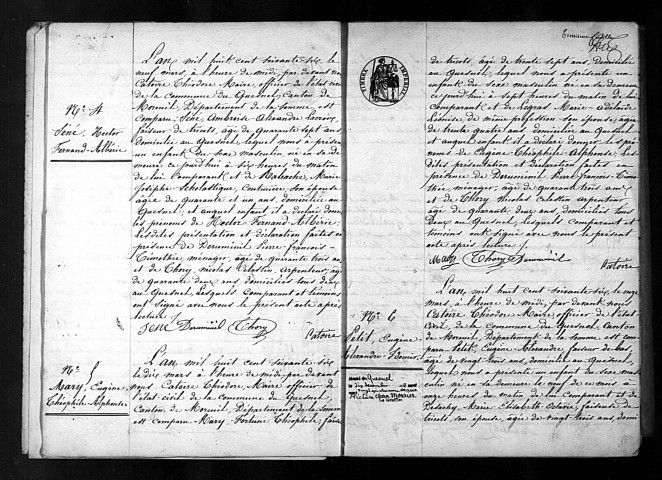 L'an mil huit cent soixante six, le
neuf mars, à l'heure de midi, par devant nous
Catoire Théodore Maire, officier de l'état civil
de la commune du Quesnel, canton de
Moreuil, Département de la Somme, est
comparu Séné, Ambroise Alexandre
faiseur de tricots, âgé de quarante sept ans,
domicilié au Quesnel, lequel nous a présenté
un enfant du sexe masculin, né en sa de-
meure ce jourd'hui à six heures du matin
de lui comparant et de Marie
Josephe Scholastique, couturière son épouse
âgée de quarante et un ans, domiciliée au
Quesnel, et auquel enfant il a déclaré donner
les prénoms de Hector Fernand Albérie.
Lesdites présentation et déclaration faites en
présence de Dumeinil Pierre François
Timothée ménager, âgé de quarante trois ans
et de Thory Nicolas Célestin, arpenteur, âgé
de quarante deux ans, domiciliés tous deux
au Quesnel, lesquels comparant et témoins
ont signé avec nous le présent acte après
lecture.
Séné Thory Catoire
N° 4
Séné, Hector
Fernand-Albérie
N° 5
Mary, Eugène
Théophile Alphonse
L'an mil huit cent soixante six,
le dix mars, à l'heure de midi, par devant
nous Catoire Théodore Maire officier de
l'état civil de la commune du Quesnel,
Canton de Moreuil, Département de la Somme
est comparu Mary Fortuné Théophile, faiseur
de tricots, âgé de trente sept ans, domicilié
au Quesnel, lequel nous a présenté un
enfant du sexe masculin né en sa demeure
ce jourd'hui à sept heures du matin de lui
comparant et de Legras Marie Adelaïde
de même profession son épouse âgée
de trente quatre ans, domiciliée au Quesnel
et auquel enfant il a déclaré donner les pré-
noms de Eugène Théophile Alphonse. Les
dites présentation et déclaration faites en
présence de Pierre François Timo-
thée ménager, âgé de quarante trois ans
et de Thory Nicolas Célestin arpenteur
âgé de quarante deux ans, domiciliés tous
deux au Quesnel, lesquels comparant et
témoins ont signé avec nous le présent
acte après lecture.
Mary Thory Catoire
N° 6
Petit, Eugène
Alexandre
L'an mil huit cent soixante six, le onze
mars, à l'heure de midi, par devant nous
Catoire Théodore Maire, officier de l'état
civil de la commune du Quesnel, Canton
de Moreuil, Département de la Somme est com-
paru Petit, Eugène Alexandre, faiseur de bas,
âgé de vingt trois ans, domicilié au Quesnel,
lequel nous a présenté un enfant du sexe mas-
culin né en sa demeure le neuf de ce mois à
onze heures du matin de lui comparant et de
Marie Elisabeth Octavie, faiseuse de
tricots, son épouse, âgée de vingt trois ans, domi-